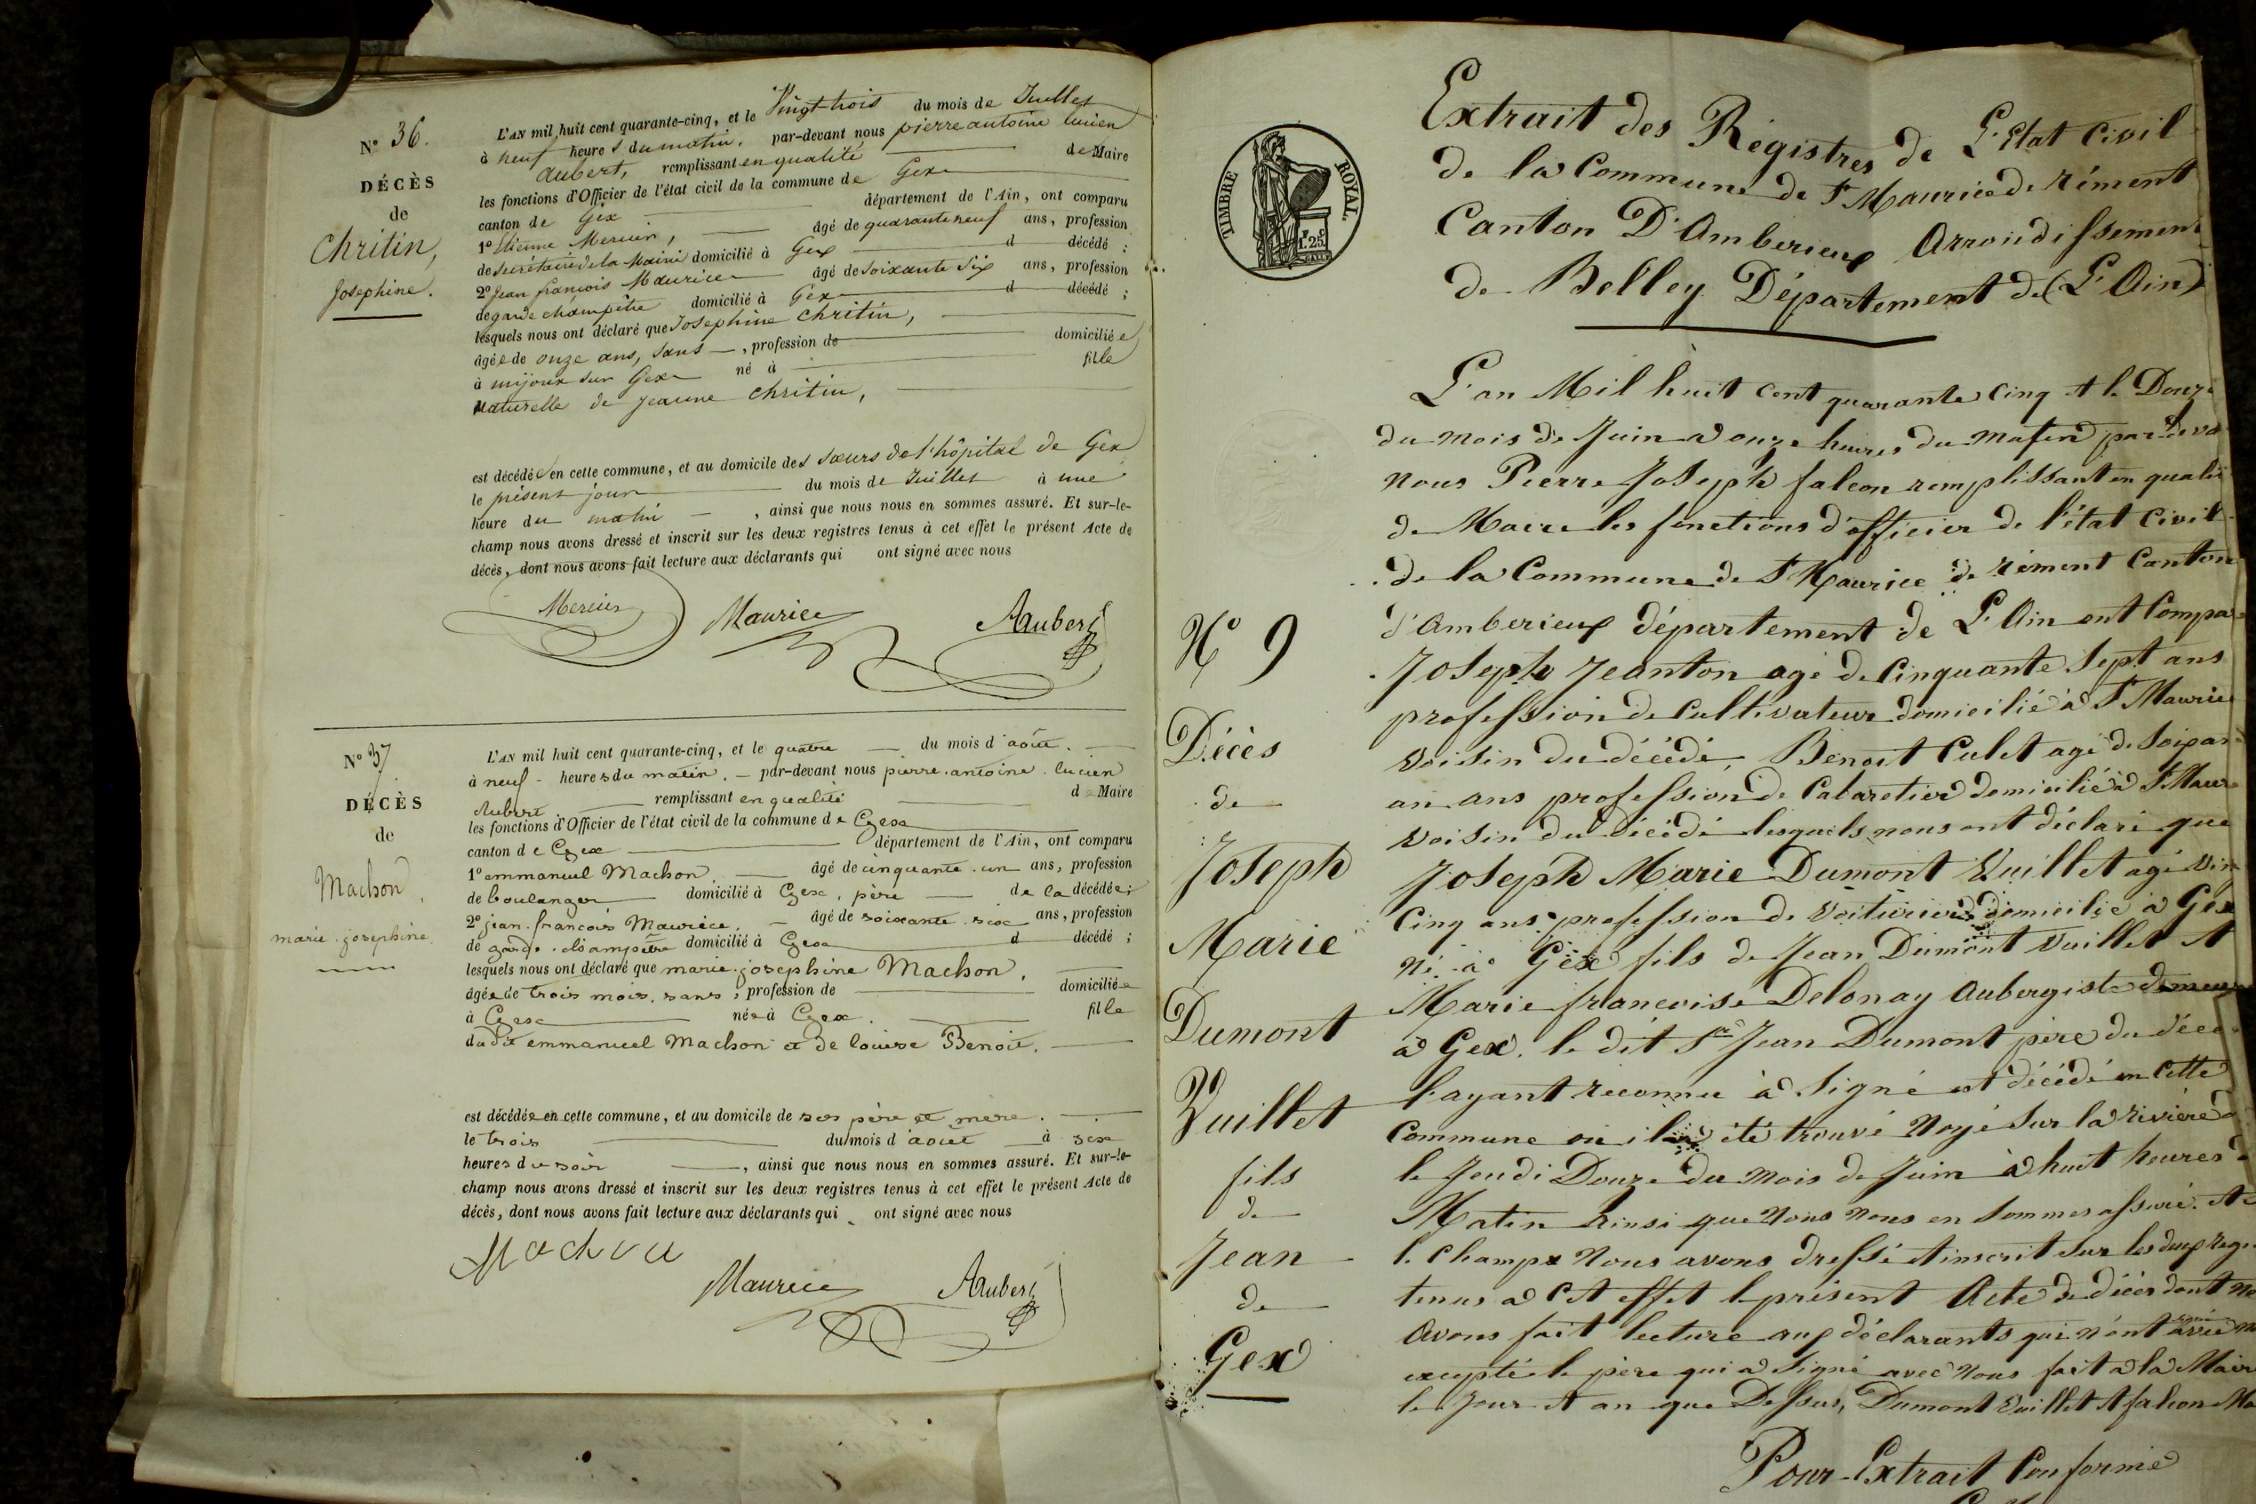 N° 36.
DÉCÈS
de
Chritin,
Josephine.
L'AN mil huit cent quarante-cinq, et le Vingt-trois du mois de Juillet
à neuf heures du matin, par-devant nous pierre antoine lucien
Aubert, remplissant en qualité de Maire
les fonctions d'Officier de l'état civil de la commune de Gex
canton de Gex département de l'Ain, ont comparu
1° Etienne Mercier, âgé de quarante neuf ans, profession
de Secrétaire de la Mairie domicilié à Gex d décédé ;
2° Jean françois Maurice âgé de soixante six ans, profession
de garde champêtre domicilié à Gex d décédé ;
lesquels nous ont déclaré que Josephine Chritin,
âgée de onze ans, sans , profession de domiciliée
à mijoux sur Gex né à fille
naturelle de Jeanne Chritin,
est décédée en cette commune, et au domicile des sœurs de l'hôpital de Gex
le présent jour du mois de Juillet à une
heure du matin , ainsi que nous nous en sommes assuré. Et sur-le-
champ nous avons dressé et inscrit sur les deux registres tenus à cet effet le présent Acte de
décès, dont nous avons fait lecture aux déclarants qui ont signé avec nous
Mercier Maurice Aubert
N° 37
DÉCÈS
de
Machon,
marie josephine
L'AN mil huit cent quarante-cinq, et le quatre du mois d'août.
à neuf heures du matin, par-devant nous pierre antoine lucien
Aubert remplissant en qualité d Maire
les fonctions d'Officier de l'état civil de la commune de Gex
canton de Gex département de l'Ain, ont comparu
1° emmanuel Machon âgé de cinquante un ans, profession
de boulanger domicilié à Gex, père de la décédée ;
2° jean françois Maurice, âgé de soixante six ans, profession
de garde champêtre domicilié à Gex d décédé ;
lesquels nous ont déclaré que marie josephine Machon,
âgée de trois mois, sans , profession de domiciliée
à Gex née à Gex. fille
du dit emmanuel Machon et de louise Benoit.
est décédée en cette commune, et au domicile de ses père et mère.
le trois du mois d'août à six
heures du soir , ainsi que nous nous en sommes assuré. Et sur-le-
champ nous avons dressé et inscrit sur les deux registres tenus à cet effet le présent Acte de
décès, dont nous avons fait lecture aux déclarants qui ont signé avec nous
Machon
Maurice Aubert
TIMBRE ROYAL.
1.25
Extrait des Régistres de L'Etat Civil
de la Commune de St Maurice de rément
Canton D'Amberieux Arrondissement
de Belley Département de (L'Ain)
N° 9
Décès
de
Joseph
Marie
Dumont
Vuillet
fils
de
Jean
de
Gex
L'an Mil huit cent quarante cinq et le Douze
du mois de Juin à onze heures du matin par deva
nous Pierre Joseph falcon remplissant en qualité
de Maire les fonctions d'officier de l'état civil
de la Commune de St Maurice de rément Canton
d'Amberieux département de L'Ain ont Compa
Joseph Jeanton agé de Cinquante Sept ans
profession de Cultivateur domicilié à St Maurice
voisin du décédé, Benoit Culet agé de Soixan
un ans profession de Cabaretier domicilié à St Maur
voisin du décédé lesquels nous ont déclaré que
Joseph Marie Dumont Vuillet agé Vin
Cinq ans, profession de Voiturier domicilié à Gex
né à Gex fils de Jean Dumont Vuillet et
Marie francoise Delonay Aubergiste demeur
à Gex. le dit Sr Jean Dumont père du décé
l'ayant reconnu à Signé est décédé en Cette
Commune où il a été trouvé Noyé Sur la rivière
le Jeudi Douze du mois de Juin à huit heures d
Matin Ainsi que Nous nous en Sommes assuré. et
le Champ Nous avons dressé et inscrit sur les deux regi
tenus à Cet effet le présent Acte de décès dont no
Avons fait lecture aux déclarants qui n'ont signé avec n
excepté le père qui a Signé avec Nous fait à la Mair
le Jour et an que Dessus, Dumont Vuillet et falcon Ma
Pour Extrait Conforme